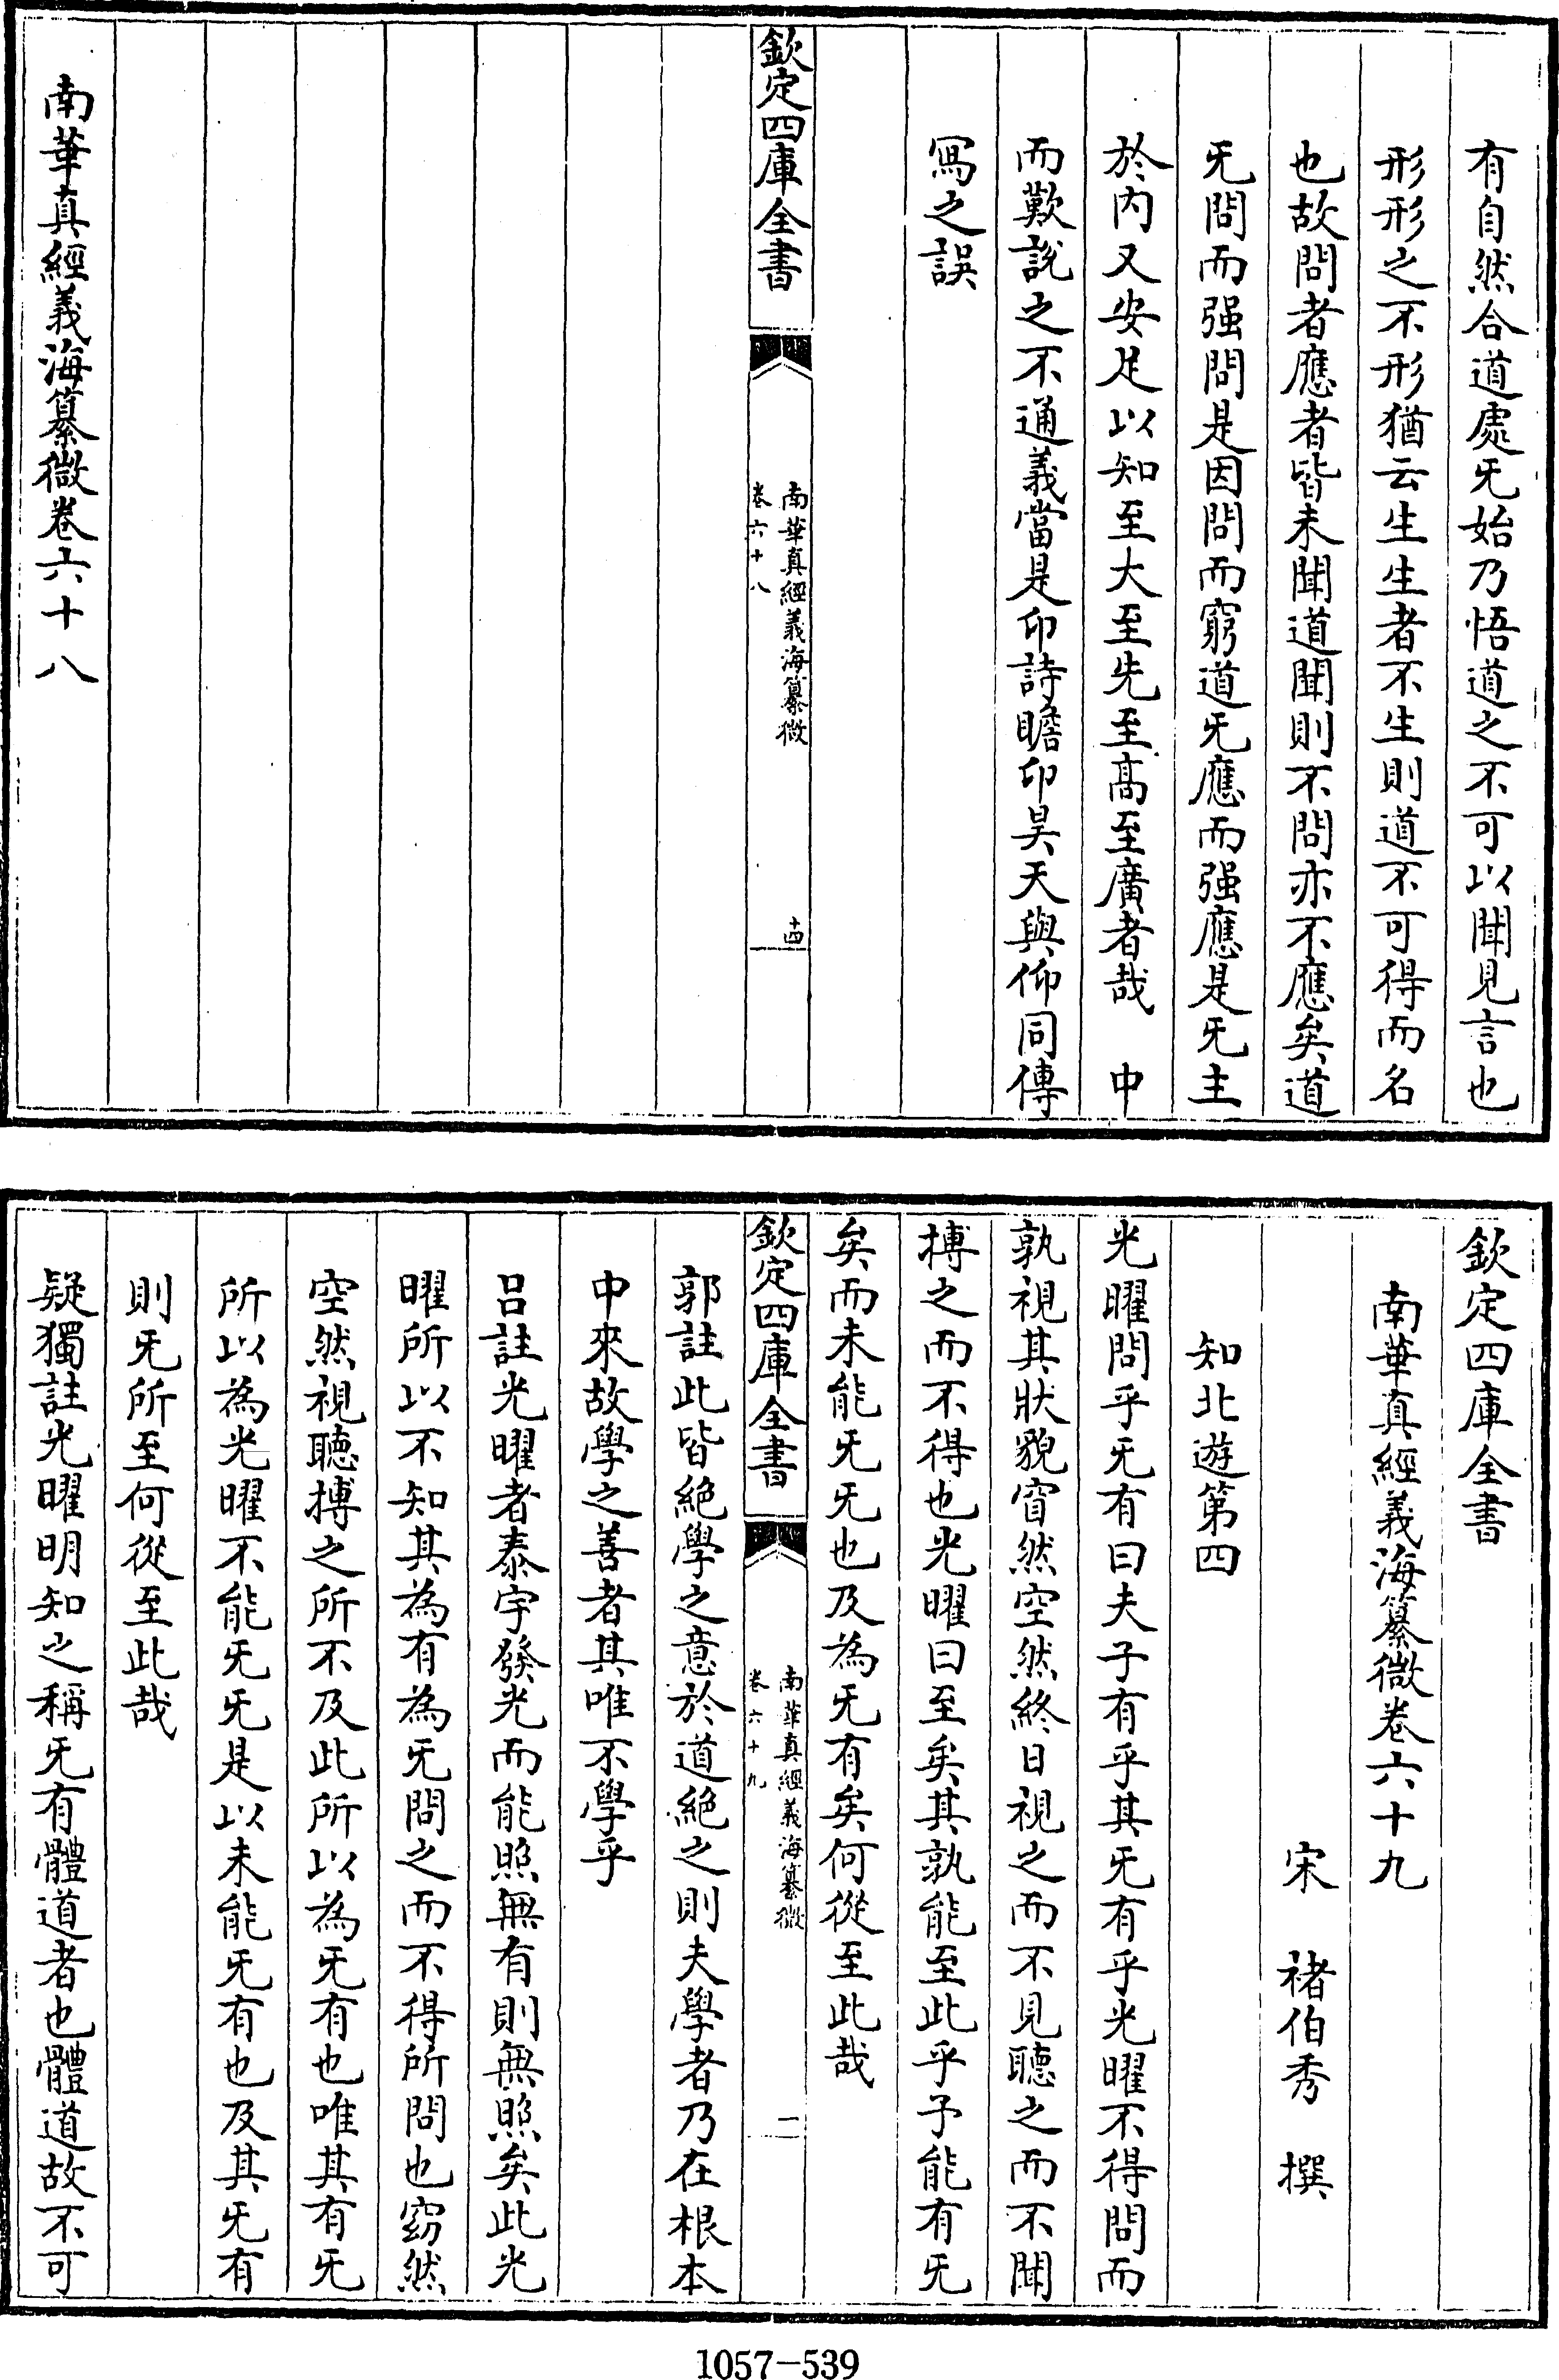 有自然合道處旡始乃悟道之不可以聞見言也
形形之不形猶云生生者不生則道不可得而名
也故問者應者皆未聞道聞則不問亦不應矣道
旡問而强問是因問而窮道旡應而强應是旡主
於内又安足以知至大至先至髙至廣者哉　中
而歎說之不通義當是卬詩瞻卬昊天與仰同傳
冩之誤
欽定四庫全書
南華真經義海纂微
卷六十八
十四
南華真經義海纂微卷六十八
欽定四庫全書
南華真經義海纂微卷六十九
宋　褚伯秀　撰
知北遊第四
光曜問乎旡有曰夫子有乎其旡有乎光曜不得問而
孰視其狀貌窅然空然終日視之而不見聽之而不聞
搏之而不得也光曜曰至矣其孰能至此乎予能有旡
矣而未能旡旡也及為旡有矣何從至此哉
欽定四庫全書
南華真經義海纂微
卷六十九
一
郭註此皆絶學之意於道絶之則夫學者乃在根本
中來故學之善者其唯不學乎
吕註光曜者泰宇發光而能照無有則無照矣此光
曜所以不知其為有為旡問之而不得所問也窈然
空然視聽搏之所不及此所以為旡有也唯其有旡
所以為光曜不能旡旡是以未能旡有也及其旡有
則旡所至何從至此哉
疑獨註光曜明知之稱旡有體道者也體道故不可
1057-539